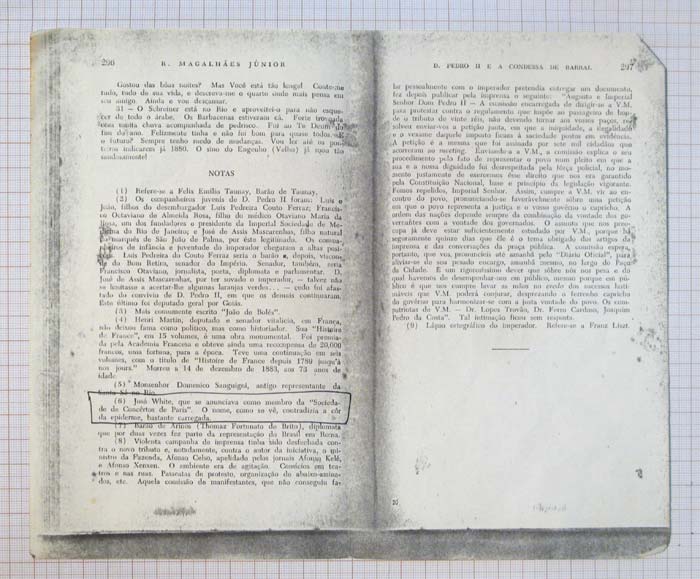 296 R. MAGALHÃES JÚNIOR
Gostou das bôas noites? Mas Você está tão longe! Conte-me
tudo, tudo de sua vida, e descreva-me o quarto onde mais pensa em
seu amigo. Ainda e vou descansar.
31 — O Schreiner está no Rio e aproveitei-o para não esque-
cer de todo o árabe. Os Barbacenas estiveram cá. Forte trovoada
esta tarde chuva acompanhada de pedrisco. Fui ao Te Deum do
fim do ano. Felizmente tinha e não foi bom para quase todos. E
o futuro? Sempre tenho medo de mudanças. Vou ler até os pon-
teiros indicarem já 1880. O sino do Engenho (Velho) já soou tão
saudosamente!
NOTAS
(1) Refere-se a Felix Emília Taunay, Barão de Taunay.
(2) Os companheiros juvenis de D. Pedro II foram: Luís e
João, filhos do desembargador Luís Pedreira Couto Ferraz; Francis-
co Octaviano de Almeida Rosa, filho do médico Otaviano Maria da
Rosa, um dos fundadores e presidente da Imperial Sociedade de Me-
dicina do Rio de Janeiro; e José de Assis Mascarenhas, filho natural
do marquês de São João de Palma, por êste legitimado. Os compa-
nheiros de infância e juventude do imperador chegaram a altas posi-
ções. Luís Pedreira do Couto Ferraz seria o barão e, depois, viscon-
de do Bom Retiro, senador do Império. Senador, também, seria
Francisco Otaviano, jornalista, poeta, diplomata e parlamentar. D.
José de Assis Mascarenhas, por ter sovado o imperador, — talvez não
se limitasse a acertar-lhe algumas laranjas verdes... — cedo foi afas-
tado do convívio de D. Pedro II, em que os demais continuaram.
Êste último foi deputado geral por Goiás.
(3) Mais comumente escrito "João de Bolés".
(4) Henri Martin, deputado e senador vitalício, em França,
não deixou fama como político, mas como historiador. Sua "Histoire
de France", em 15 volumes, é uma obra monumental. Foi premia-
da pela Academia Francesa e obteve ainda uma recompensa de 20.000
francos, uma fortuna, para a época. Teve uma continuação em seis
volumes, com o título de "Histoire de France depuis 1789 jusqu'à
nos jours". Morreu a 14 de dezembro de 1883, aos 73 anos de
idade.
(5) Monsenhor Domenico Sanguigni, antigo representante da
Santa Sé no Rio.
(6) José White, que se anunciava como membro da "Socieda-
de de Concêrtos de Paris". O nome, como se vê, contradizia a côr
da epiderme, bastante carregada.
(7) Barão de Arinos (Thomaz Fortunato de Brito), diplomata
que por duas vezes fez parte da representação do Brasil em Berna.
(8) Violenta campanha de imprensa tinha sido desfechada con-
tra o novo tributo e, notadamente, contra o autor da iniciativa, o mi-
nistro da Fazenda, Afonso Celso, apelidado pelos jornais Afonso Kelé,
e Afonso Xenxen. O ambiente era de agitação. Comícios em tea-
tros e nas ruas. Passeatas de protesto, organização de abaixo-assina-
dos, etc. Aquela comissão de manifestantes, que não conseguiu fa-
D. PEDRO II E A CONDESSA DE BARRAL 297
lar pessoalmente com o imperador pretendia entregar um documento,
fêz depois publicar pela imprensa o seguinte: "Augusto e Imperial
Senhor Dom Pedro II — A comissão encarregada de dirigir-se a V.M.
para protestar contra o regulamento que impõe ao passageiro de bon-
de o tributo de vinte réis, não devendo tornar aos vossos paços, re-
solveu enviar-vos a petição junta, em que a iniquidade, a ilegalidade
e o vexame daquele imposto ficam à sociedade postos em evidência.
A petição é a mesma que foi assinada por sete mil cidadãos que
acorreram ao meeting. Enviando-a a V.M., a comissão explica o seu
procedimento pelo fato de representar o povo num pleito em que a
sua e a nossa dignidade foi desrespeitada pela fôrça policial, no mo-
mento justamente de exercermos êsse direito que nos era garantido
pela Constituição Nacional, base e princípio da legislação vigorante.
Fomos repelidos, Imperial Senhor. Assim, cumpre a V.M. vir ao en-
contro do povo, pronunciando-se favoràvelmente sôbre uma petição
em que o povo representa a justiça e o vosso govêrno o capricho. A
ordem das nações depende sempre da combinação da vontade dos go-
vernantes com a vontade dos governados. O assunto que nos preo-
cupa já deve estar suficientemente estudado por V.M., porque há
seguramente quinze dias que êle é o tema obrigado dos artigos da
imprensa e das conversações da praça pública. A comissão espera,
portanto, que vos, pronuncieis até amanhã pelo "Diário Oficial", para
aliviar-se de seu penoso encargo, amanhã mesmo, no largo do Paço
da Cidade. É um rigorosíssimo dever que sôbre nós nos pesa e do
qual havemos de desempenhar-nos em público, mesmo porque em pú-
blico é que nos cumpre lavar as mãos no credo dos sucessos lasti-
máveis que V.M. poderá conjurar, desprezando o ferrenho capricho
do govêrno para harmonizar-se com a justa vontade do povo. Os com-
patriotas de V.M. — Dr. Lopes Trovão, Dr. Ferro Cardoso, Joaquim
Pedro da Costa". Tal intimação ficou sem resposta.
(9) Lápso ortográfico do imperador. Refere-se a Franz Liszt.
20